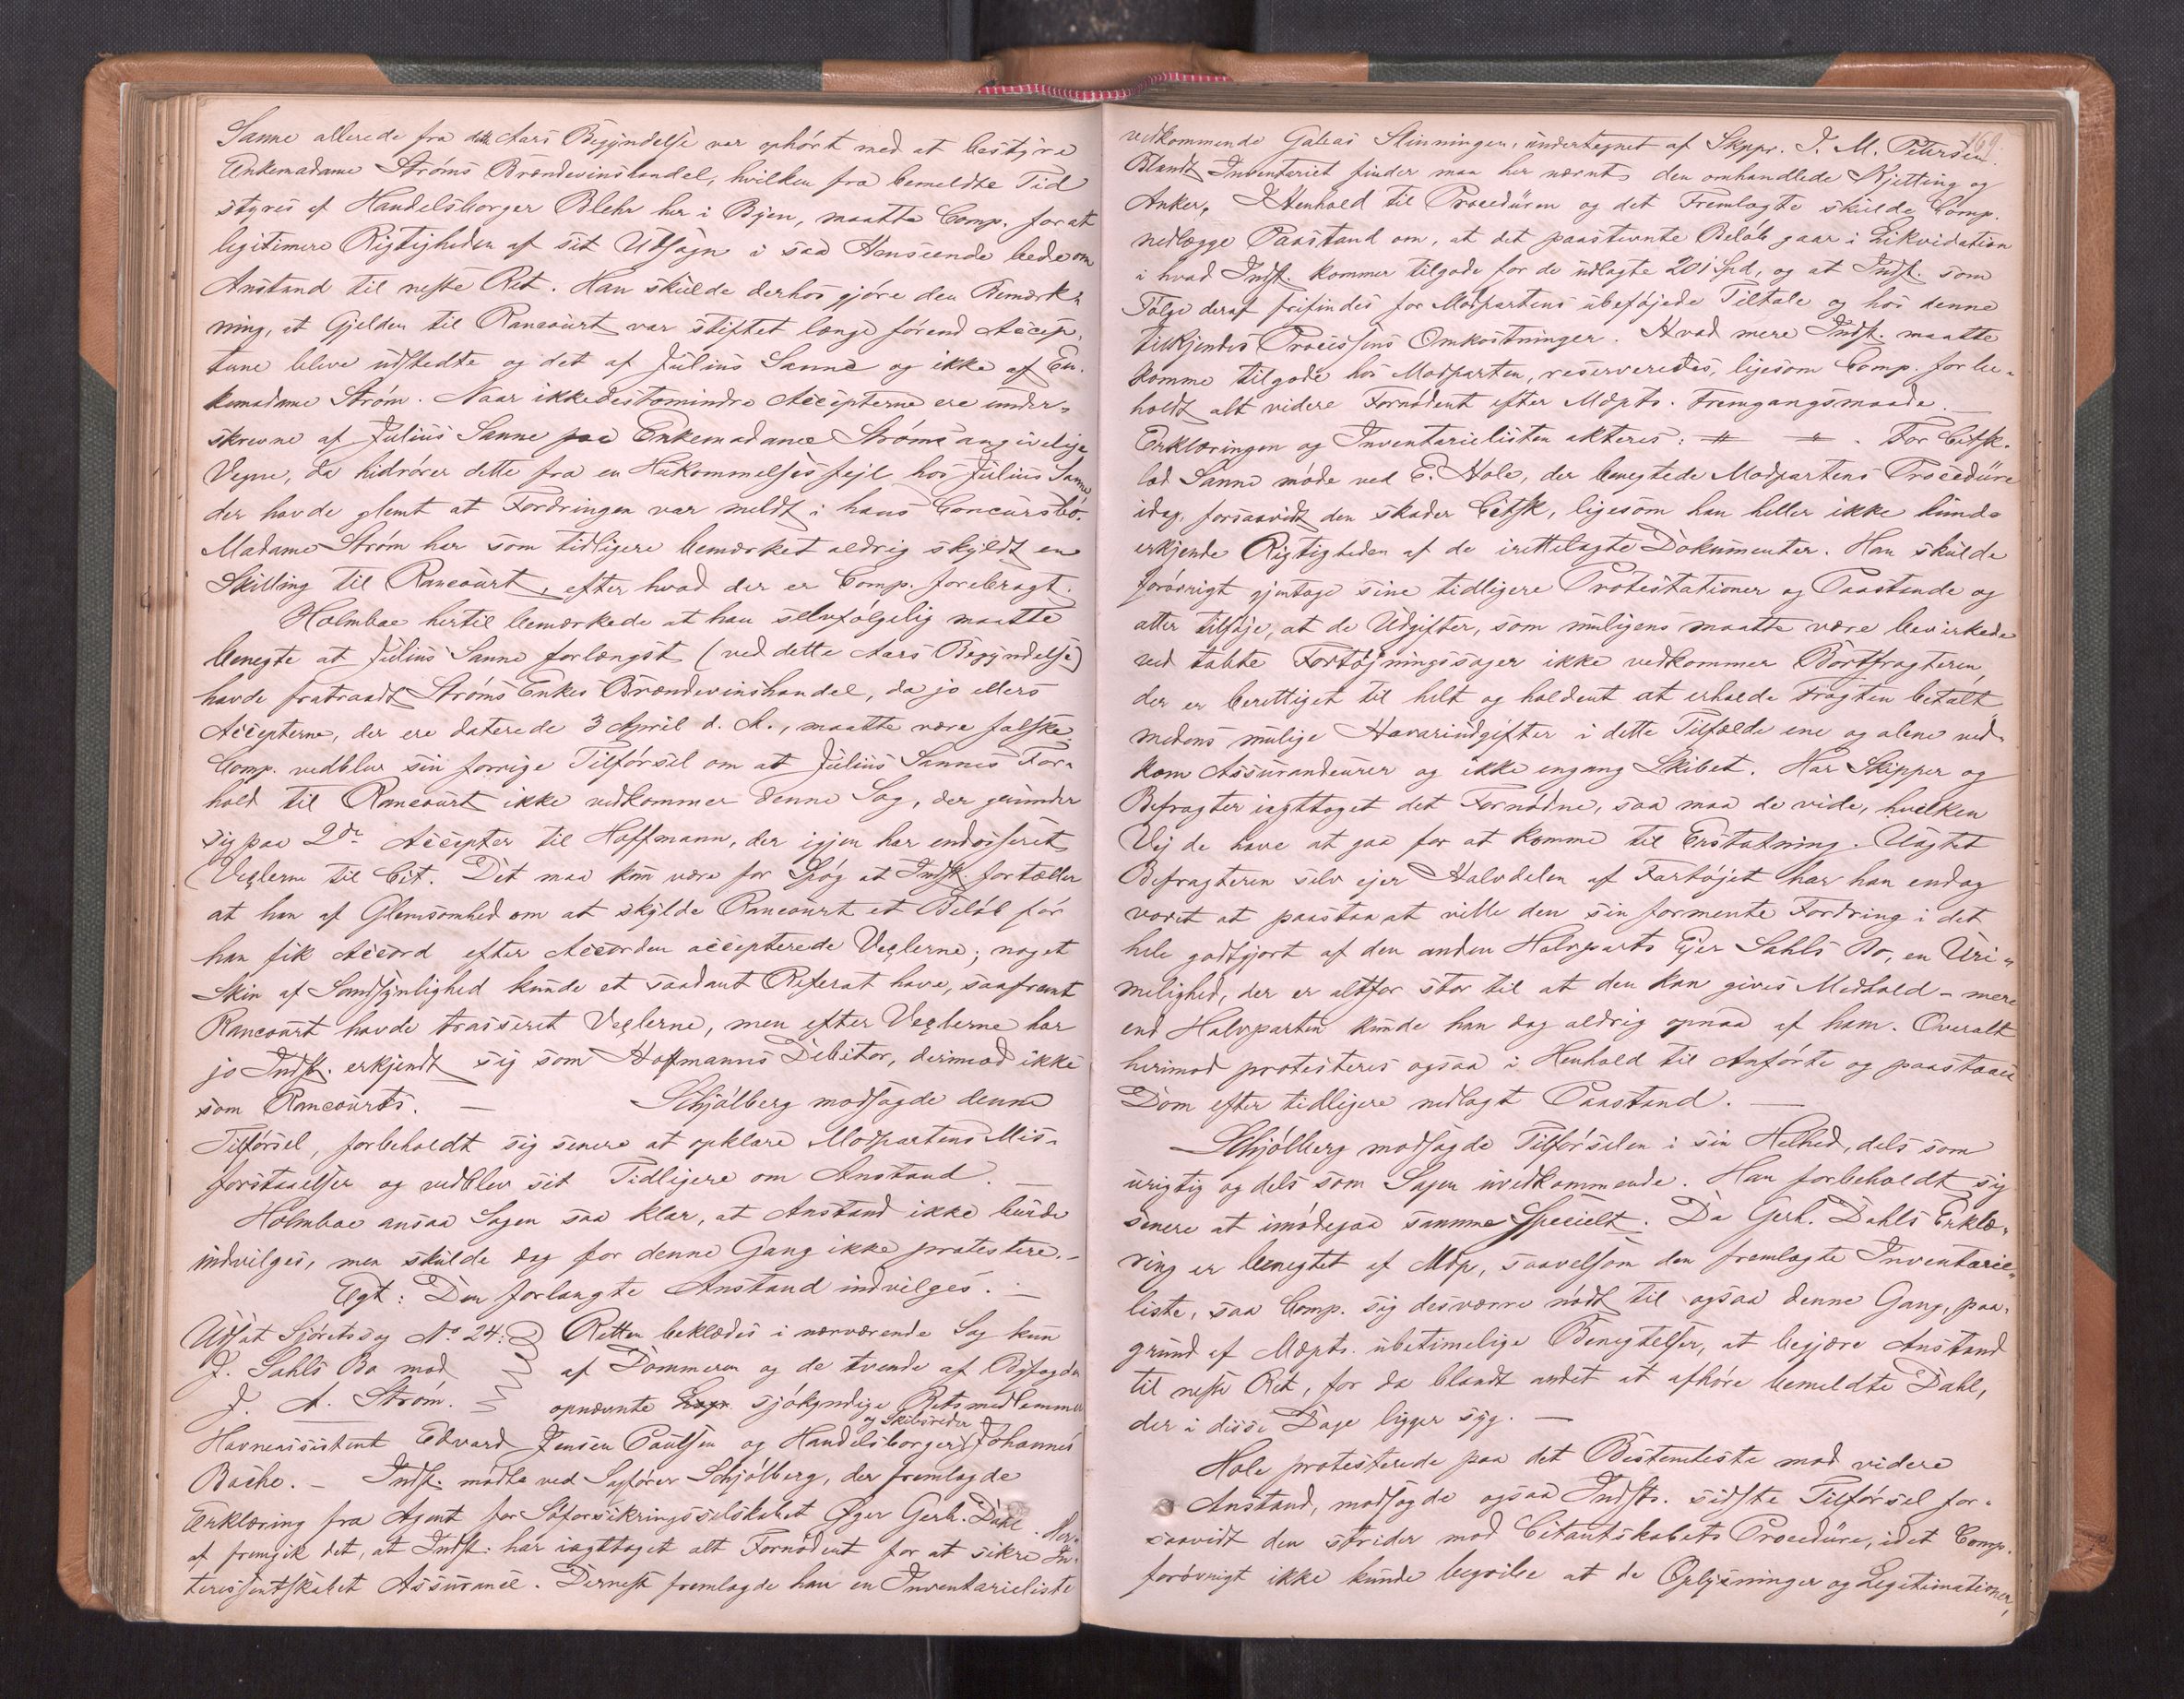 Sanne allerede fra dette Aars Begyndelse var ophört med at bestyre
Enkemadame Ströms Brændevinshandel, hvilken fra bemeldte Tid
styres af Handelsborger Blehr her i Byen, maatte Comp. for at
legitimere Rigtigheden af sit Udsagn i saa Henseende bede om
Anstand til neste Ret. Han skulde derhos gjöre den Bemærk-
ning, at Gjelden til Rancourt var stiftet længe förend Accep-
terne bleve udstedte og det af Julius Sanne og ikke af En-
kemadame Ström. Naar ikkedestomindre Accepterne ere under-
skrevne af Julius Sanne paa Enkemadame Ströms angivelige
Vegne, da hidrörer dette fra en Hukommelsesfejl hos Julius Sanne,
der havde glemt at Fordringen var meldt i hans Concursbo.
Madame Ström har som tidligere bemærket aldrig skyldt en
Skilling til Rancourt, efter hvad der er Comp. forebragt.
Holmboe hertil bemærkede at han selvfölgelig maatte
benegte at Julius Sanne forlængst (ved dette Aars Begyndelse)
havde fratraadt Ströms Enkes Brændevinshandel, da jo ellers
Accepterne, der ere daterede 3 April d. A., maatte være falske.
Comp. vedblev sin forrige Tilförsel om at Julius Sannes For-
hold til Rancourt ikke vedkommer denne Sag, der grunder
sig paa 2de Accepter til Hoffmann, der igjen har endosseret
Vexlerne til Cit. Det maa kun være for Spög at Indst. fortæller
at han af Glemsomhed om at skylde Rancourt et Belöb för
han fik Accord efter Accorden accepterede Vexlerne; noget
Skin af Sandsynlighed kunde et saadant Referat have, saafremt
Rancourt havde trasseret Vexlerne, men efter Vexlerne har
jo Indst. erkjendt sig som Hoffmanns Debitor, derimod ikke
som Rancourts. — Schjölberg modsagde denne
Tilförsel, forbeholdt sig senere at opklare Modpartens Mis-
forstaaelser og vedblev sit Tidligere om Anstand. —
Holmboe ansaa Sagen saa klar, at Anstand ikke burde
indvilges, men skulde dog for denne Gang ikke protestere. —
Egt: Den forlangte Anstand indvilges. —
Udsat Sjöretssag No 24: Retten beklædes i nærværende Sag kun
J. Sahls Bo mod af Dommeren og de tvende af Byfogden
J. A. Ström. opnævnte sjökyndige Retsmedlemmer
og Skibsreder
Havneassistent Edvard Jensen Paulsen og Handelsborger Johannes
Backe. — Indst. mödte ved Sagförer Schjölberg, der fremlagde
Erklæring fra Agent for Söforsikringsselskabet Øger Gerh. Dahl. Her-
af fremgik det, at Indst. har iagttaget alt Fornödent for at sikre In-
teressentskabet Assurance. Dernest fremlagde han en Inventarieliste
169.
vedkommende Galeas Slinningen, undertegnet af Skppr. J. M. Petersen.
Blandt Inventariet finder man her nævnt den omhandlede Kjetting og
Anker. I Henhold til Proceduren og det Fremlagte skulde Comp.
nedlægge Paastand om, at det paastevnte Belöb gaar i Likvidation
i hvad Indst. kommer tilgode for de udlagte 201 Spd, og at Indst. som
Fölge deraf frifindes for Modpartens ubeföjede Tiltale og hos denne
tilkjendes Processens Omkostninger. Hvad mere Indst. maatte
komme tilgode hos Modparten, reserveredes, ligesom Comp. forbe-
holdt alt videre Fornödent efter Mdpts. Fremgangsmaade. —
Erklæringen og Inventarielisten akteres: # — # . For Citsk.
lod Sanne möde ved E. Hole, der benegtede Modpartens Procedüre
idag, forsaavidt den skader Citsk, ligesom han heller ikke kunde
erkjende Rigtigheden af de irettelagte Dokumenter. Han skulde
forövrigt gjentage sine tidligere Protestationer og Paastande og
atter tilföje, at de Udgifter, som muligens maatte være bevirkede
ved tabte Fortöjningssager ikke vedkommer Bortfragteren,
der er berettiget til helt og holdent at erholde Fragten betalt
medens mulige Havariudgifter i dette Tilfælde ene og alene ved-
kom Assurandeurer og ikke engang Skibet. Har Skipper og
Befragter iagttaget det Fornödne, saa maa de vide, hvilken
Vej de have at gaa for at komme til Erstatning. Uagtet
Befragteren selv ejer Halvdelen af Fartöjet har han endog
vovet at paastaa at ville den sin formente Fordring i det
hele godtgjort af den anden Halvparts Ejer Sahls Bo, en Uri-
melighed, der er altfor stor til at den kan gives Medhold – mere
end Halvparten kunde han dog aldrig opnaa af ham. Overalt
herimod protesteres ogsaa i Henhold til Anförte og paastaaes
Dom efter tidligere nedlagt Paastand. —
Schjölberg modsagde Tilförselen i sin Helhed, dels som
urigtig og dels som Sagen uvedkommende. Han forbeholdt sig
senere at imödegaa samme specielt. Da Gerh. Dahls Erklæ-
ring er benegtet af Mdp, saavelsom den fremlagte Inventarie-
liste, saa Comp. sig desværre nödt til ogsaa denne Gang, paa-
grund af Mdpts. ubetimelige Benegtelser, at begjære Anstand
til neste Ret, for da blandt andet at afhöre bemeldte Dahl,
der i disse Dage ligger syg. —
Hole protesterede paa det Bestemteste mod videre
Anstand, modsagde ogsaa Indsts. sidste Tilförsel for-
saavidt den strider mod Citantskabets Procedüre, idet Comp.
forövrigt ikke kunde begribe at de Oplysninger og Legitimationer,